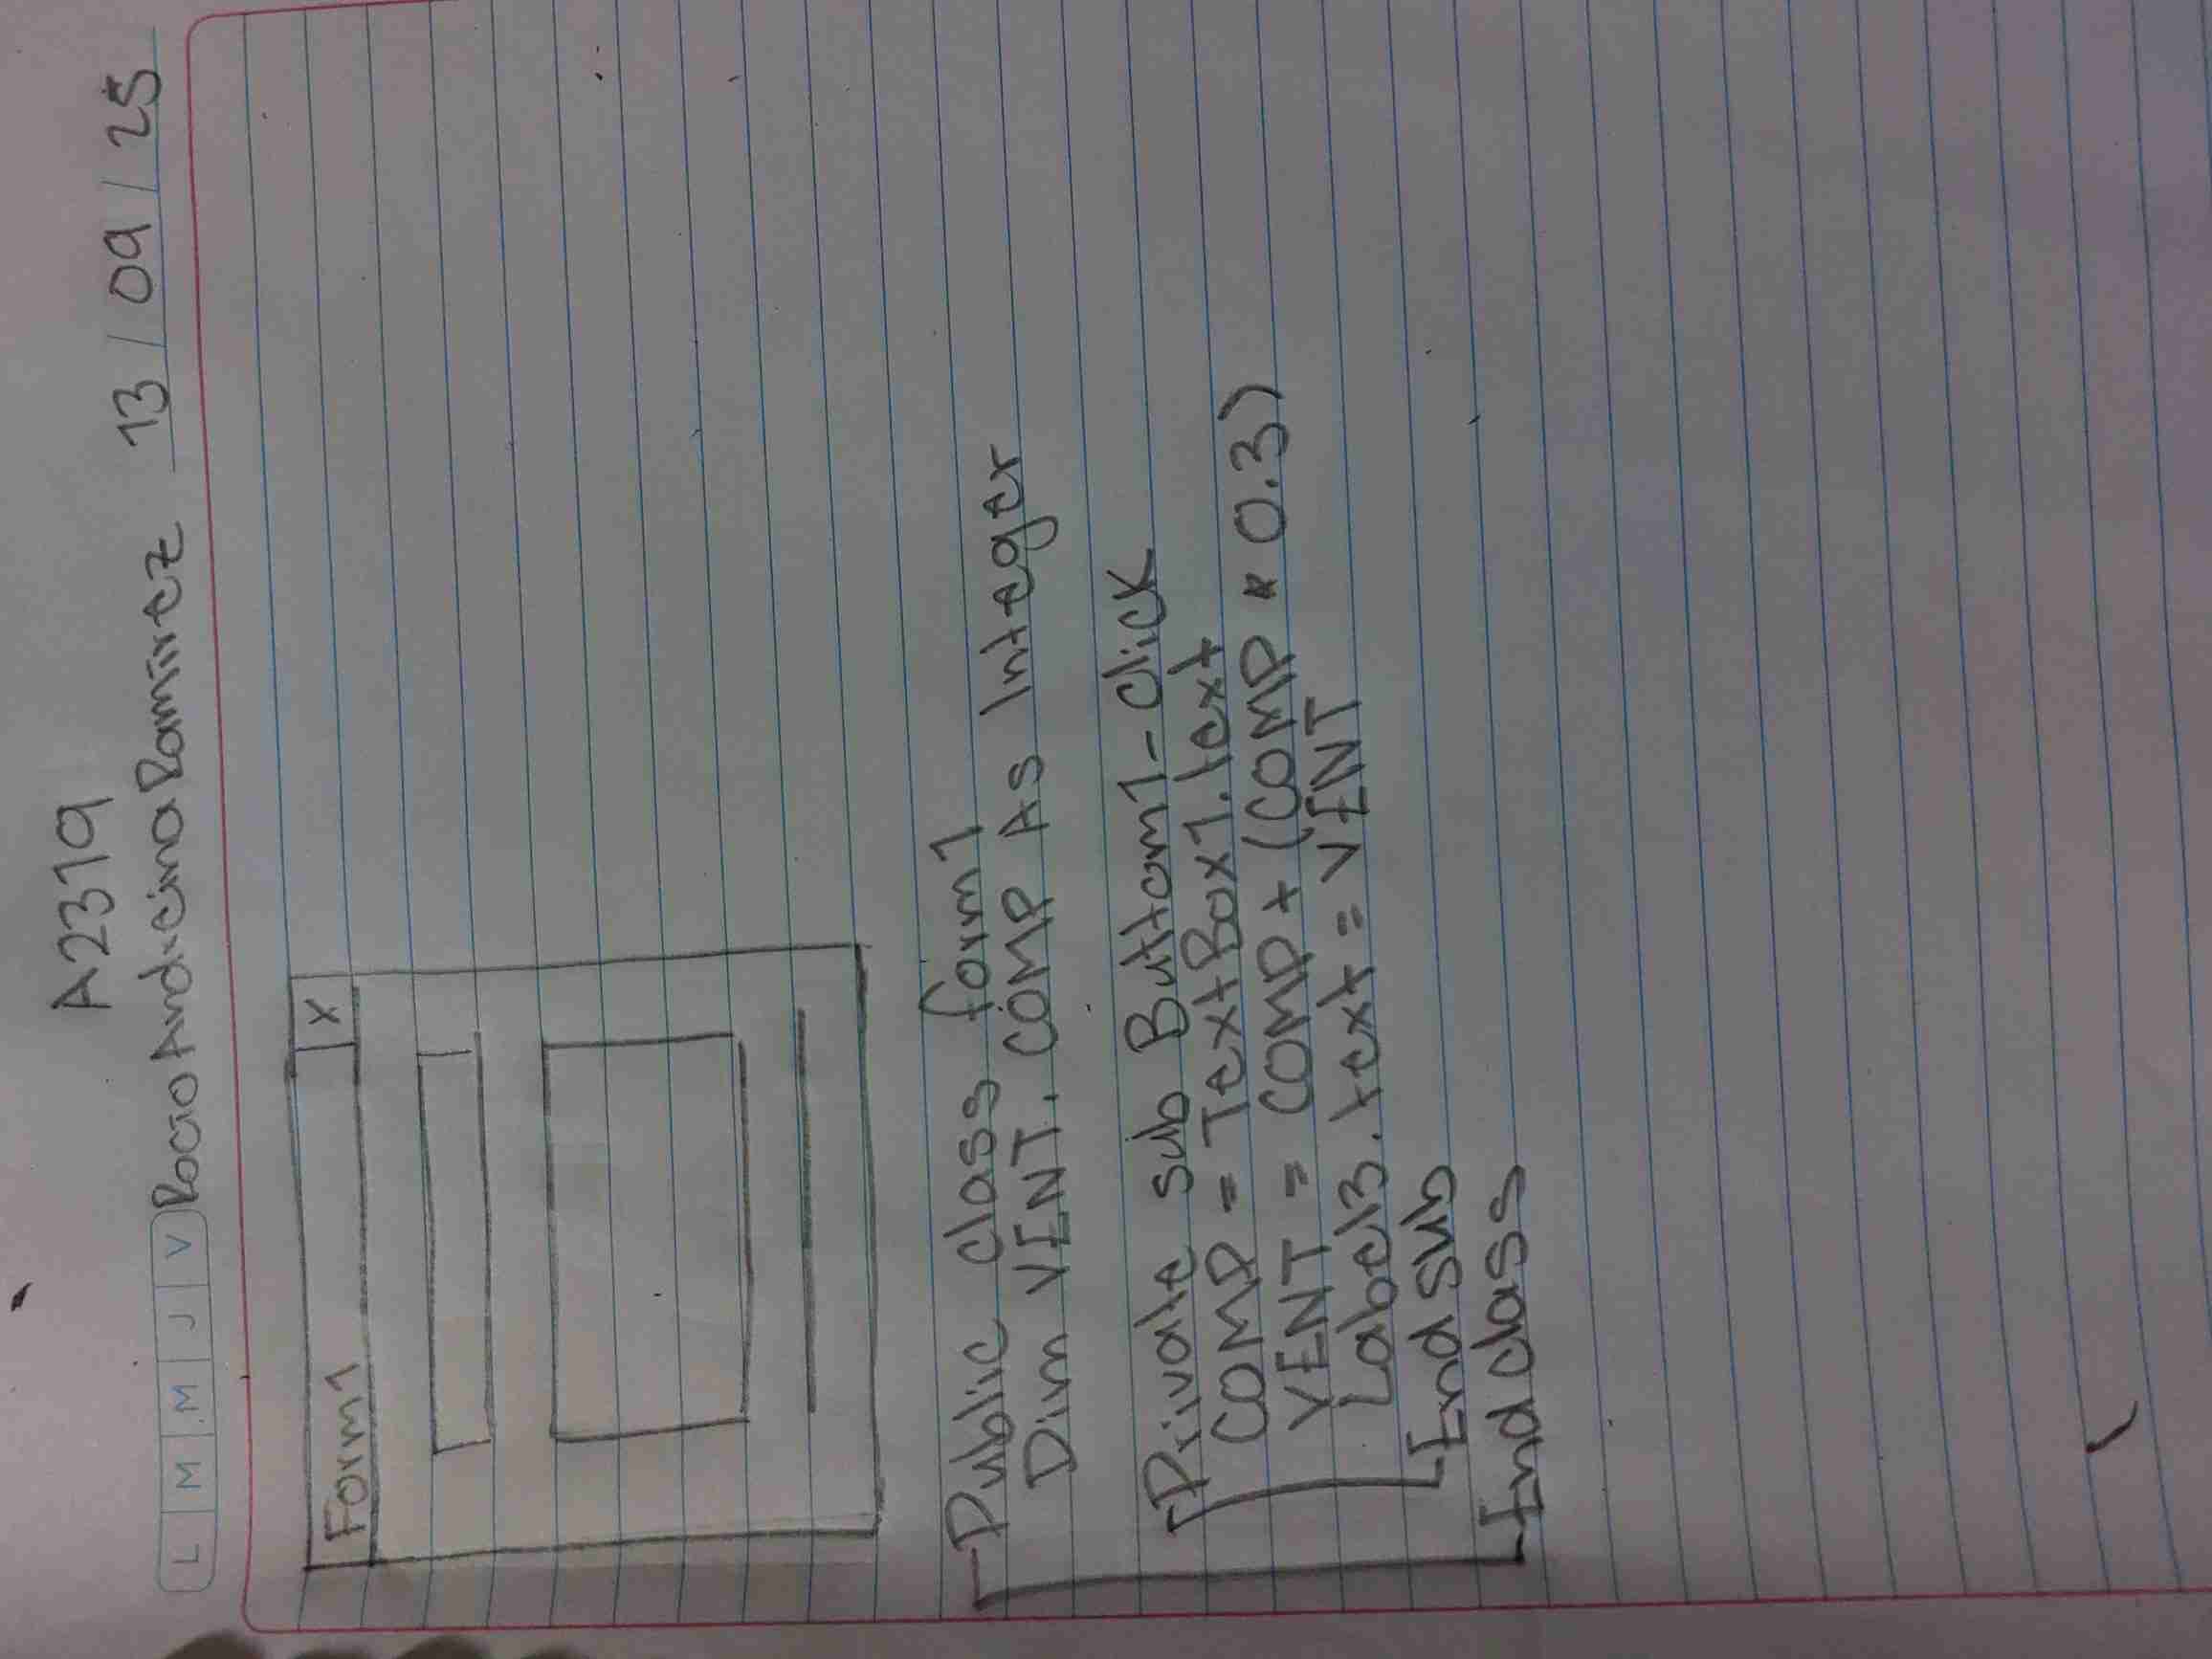 A2319
L M M J V Rocio Andreina Ramirez 13 / 09 / 25
Form1 X
Public class form1
Dim VENT. COMP As Integer
Private sub Buttom1-click
COMP = TextBox1.text
VENT = COMP + (COMP * 0.3)
Label3.text = VENT
End sub
End class